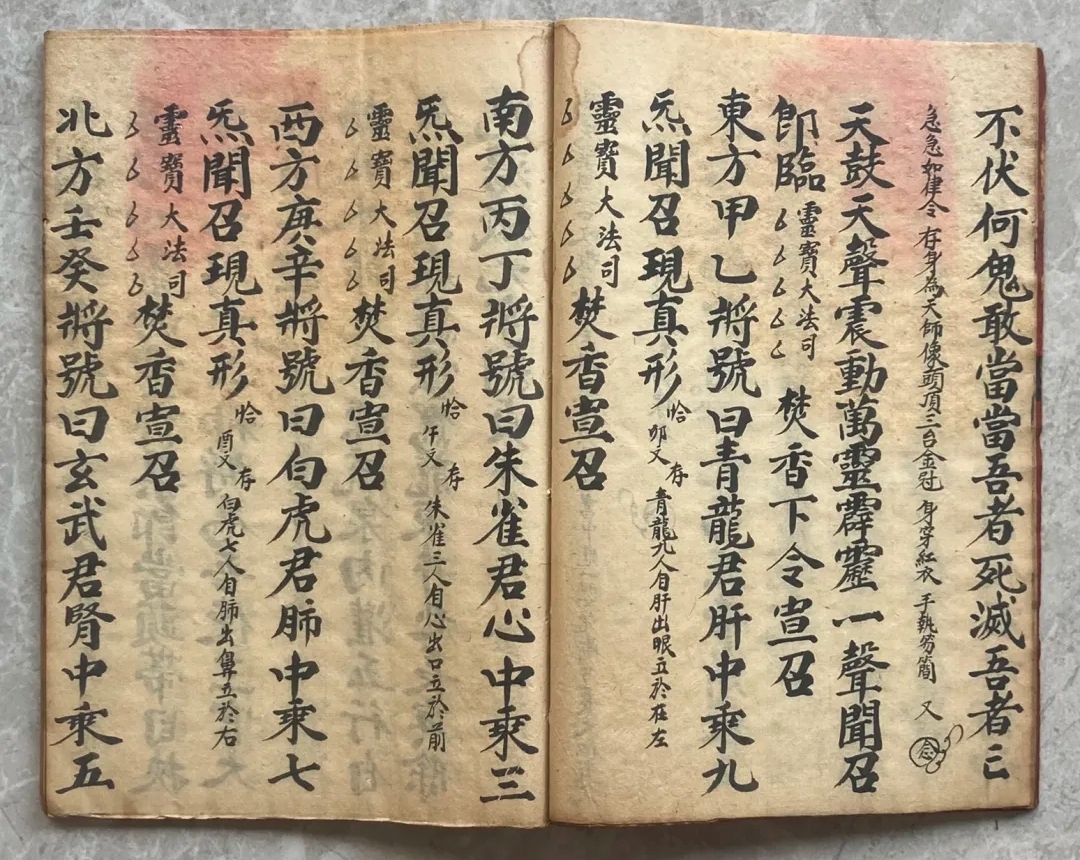 不伏何鬼敢當當吾者死滅吾者亡
急急如律令 存身為天師像頭頂三台金冠 身穿紅衣 手執笏簡 又 念
天鼓天聲震動萬靈霹靂一聲聞召
即臨 靈寶大法司 焚香下令宣召
東方甲乙將號曰青龍君肝中乘九
炁聞召現真形 恰卯文 存 青龍九人自肝出眼立於在左
靈寶大法司 焚香宣召
南方丙丁將號曰朱雀君心中乘三
炁聞召現真形 恰午文 存 朱雀三人自心出口立於前
靈寶大法司 焚香宣召
西方庚辛將號曰白虎君肺中乘七
炁聞召現真形 恰酉文 存 白虎七人自肺出鼻立於右
靈寶大法司 焚香宣召
北方壬癸將號曰玄武君腎中乘五